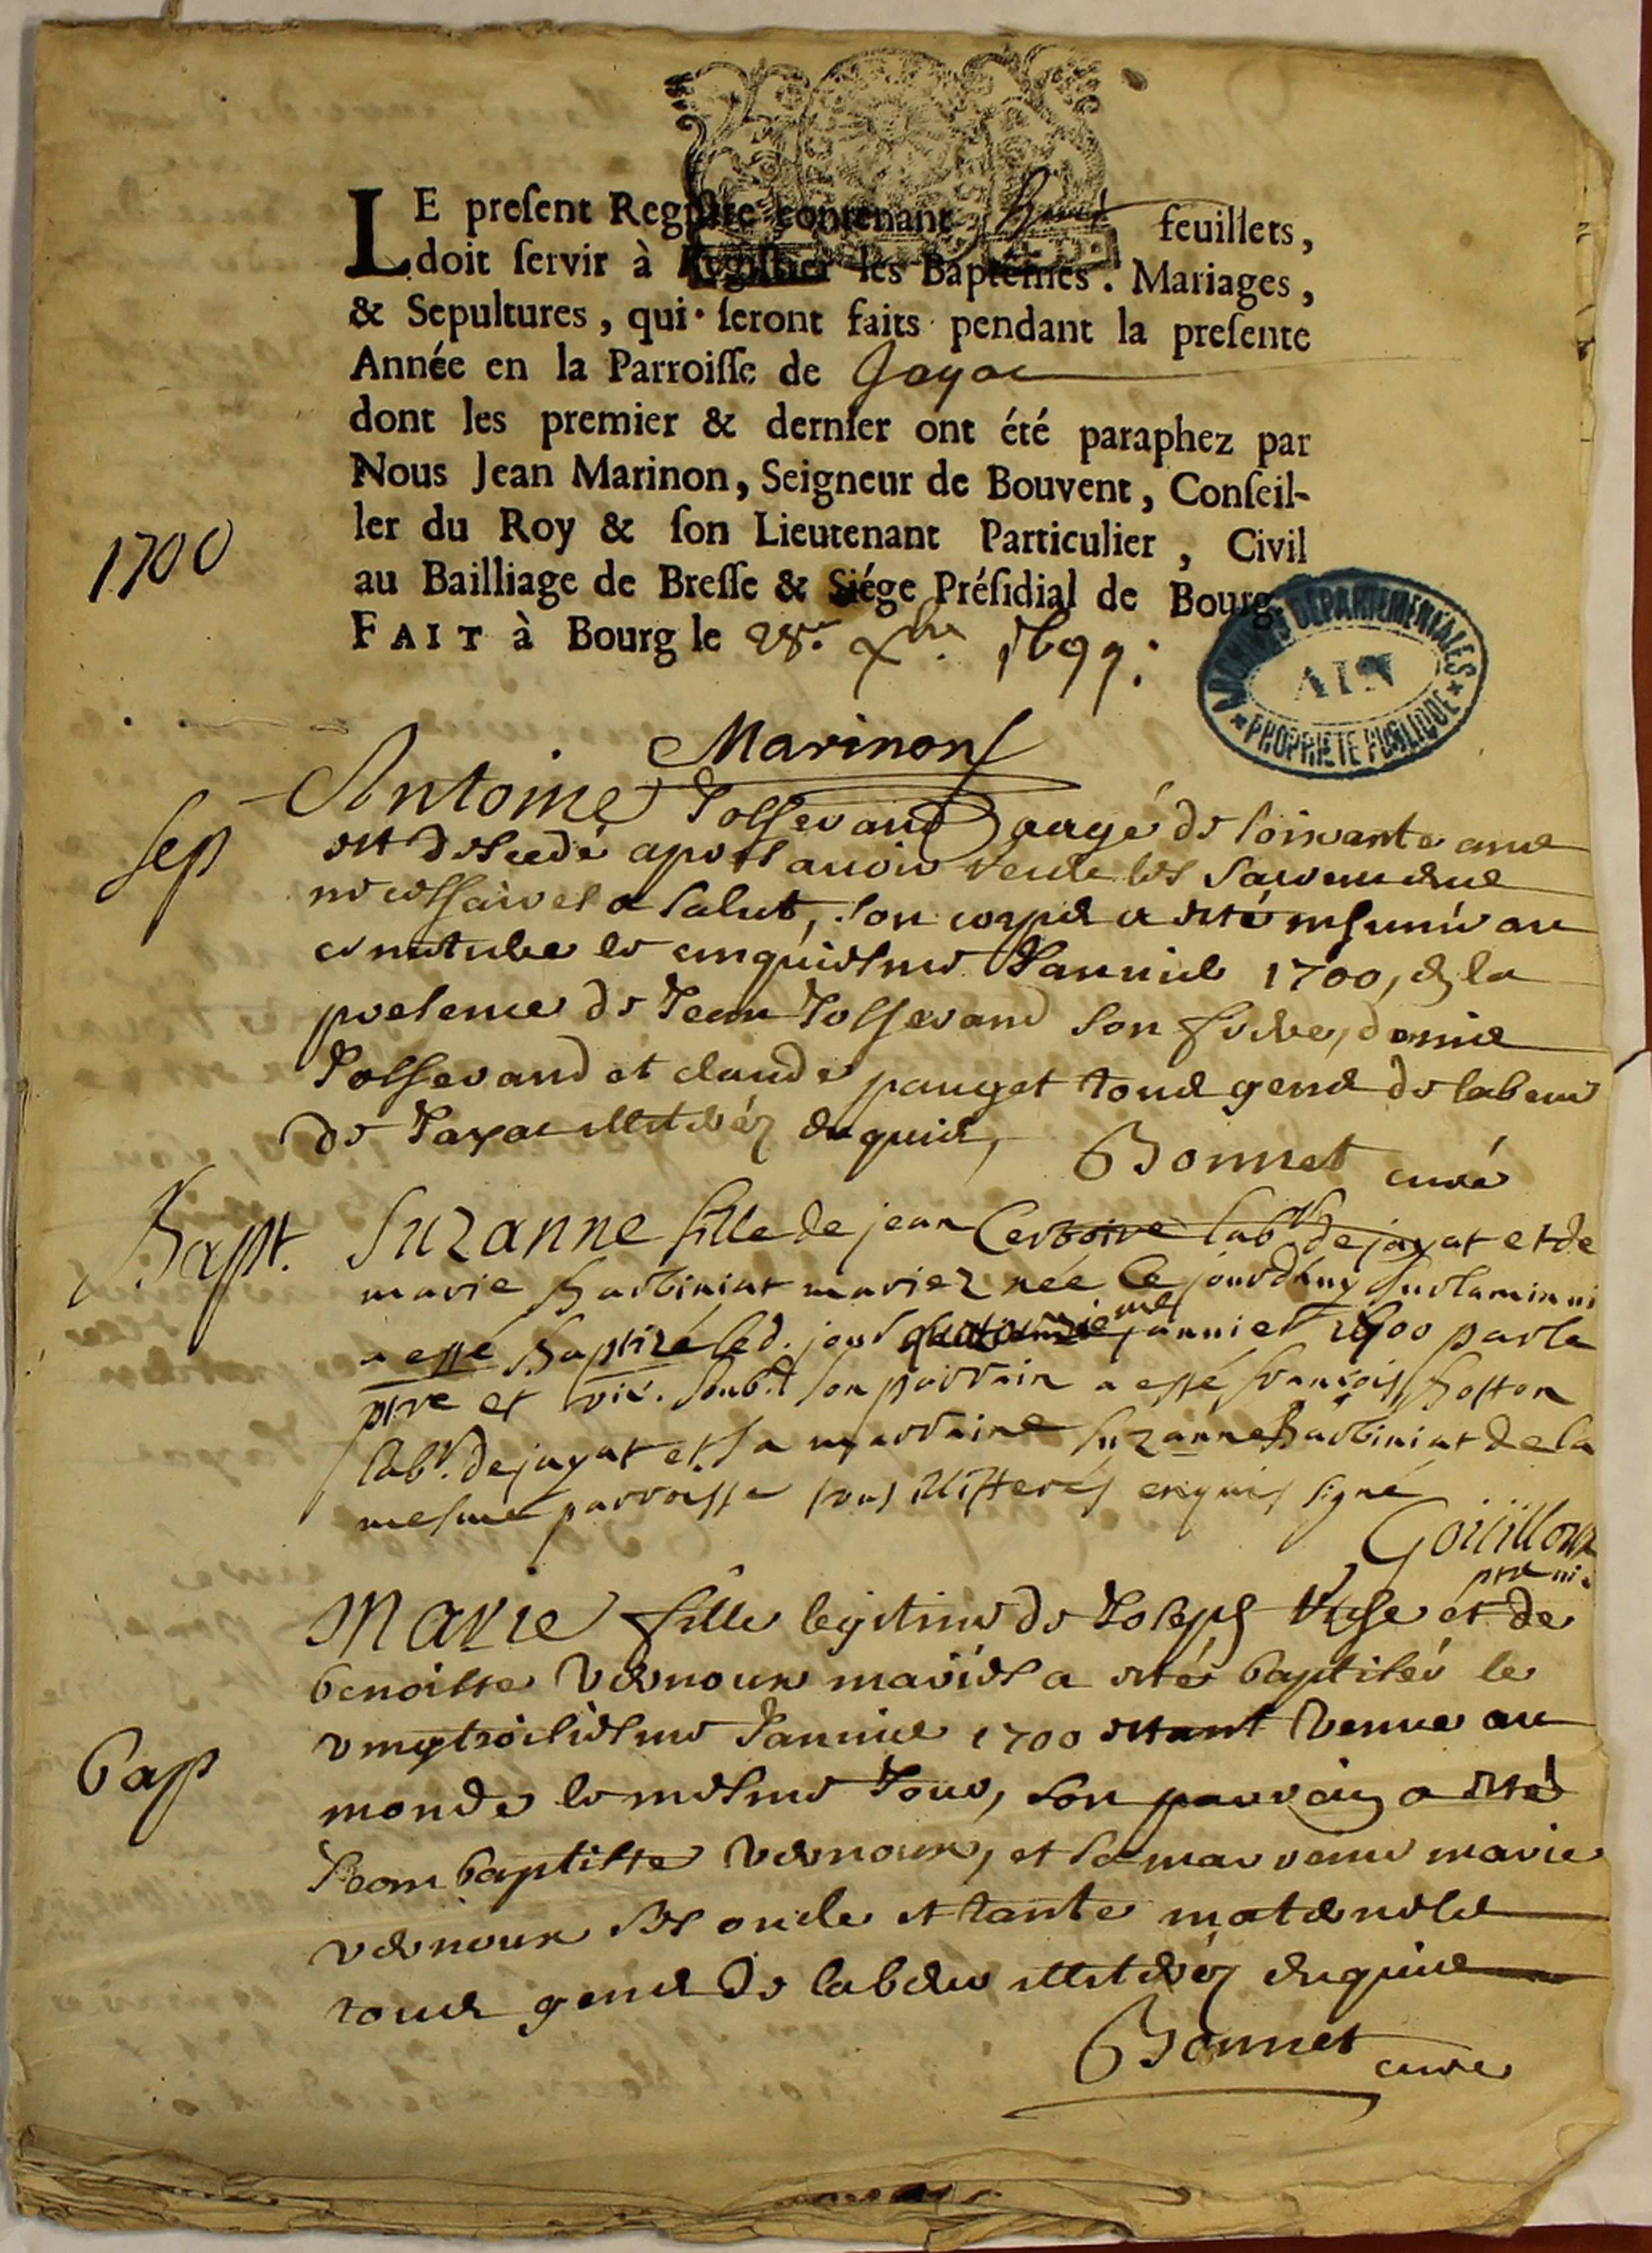 LE preſent Regiſtre contenant huit feuillets,
doit ſervir à Regiſtrer les Baptêmes. Mariages,
& Sepultures, qui ſeront faits pendant la preſente
Année en la Parroiſſe de Jayac
dont les premier & dernier ont été paraphez par
Nous Jean Marinon, Seigneur de Bouvent, Conſeil-
ler du Roy & ſon Lieutenant Particulier, Civil
au Bailliage de Breſſe & Siége Préſidial de Bourg.
FAIT à Bourg le 28e xbre 1699.
1700
ARCHIVES DEPARTEMENTALES
AIN
PROPRIETE PUBLIQUE
Marinon
Sep
Antoine Josserand aagé de soixante ans
est decedé apres avoir receu les sacremens
necessaires a salut, son corps a esté inhumé au
cimetiere le cinquiesme Janvier 1700, en la
presence de Jean Josserand son frere, denis
Josserand et claude pauget tous gens de labeur
de Jayac illiterés enquis,
Bonnet curé
Bapt.
Suzanne fille de jean labr. de jayat et de
marie Barbiniat mariez née le jourdhuy sur la minui
a esté Baptizé led. jour janvier 1700 par le
ptre et vic. soub.t son parrain a esté françois
labr. de jayat et sa marraine Suzanne Barbiniat de la
mesme parroisse tous illiterés enquis signé
Gouillon
ptre vi.
Bap
Marie fille legitime de Joseph et de
benoiste Vernoux mariés a esté baptisée le
vingtroisiesme Janvier 1700 estant venue au
monde le mesme Jour, son parrain a esté
Jean baptiste Vernoux, et sa marraine marie
vernoux ses oncle et tante maternels
tous gens de labeur illiterés enquis
Bonnet curé